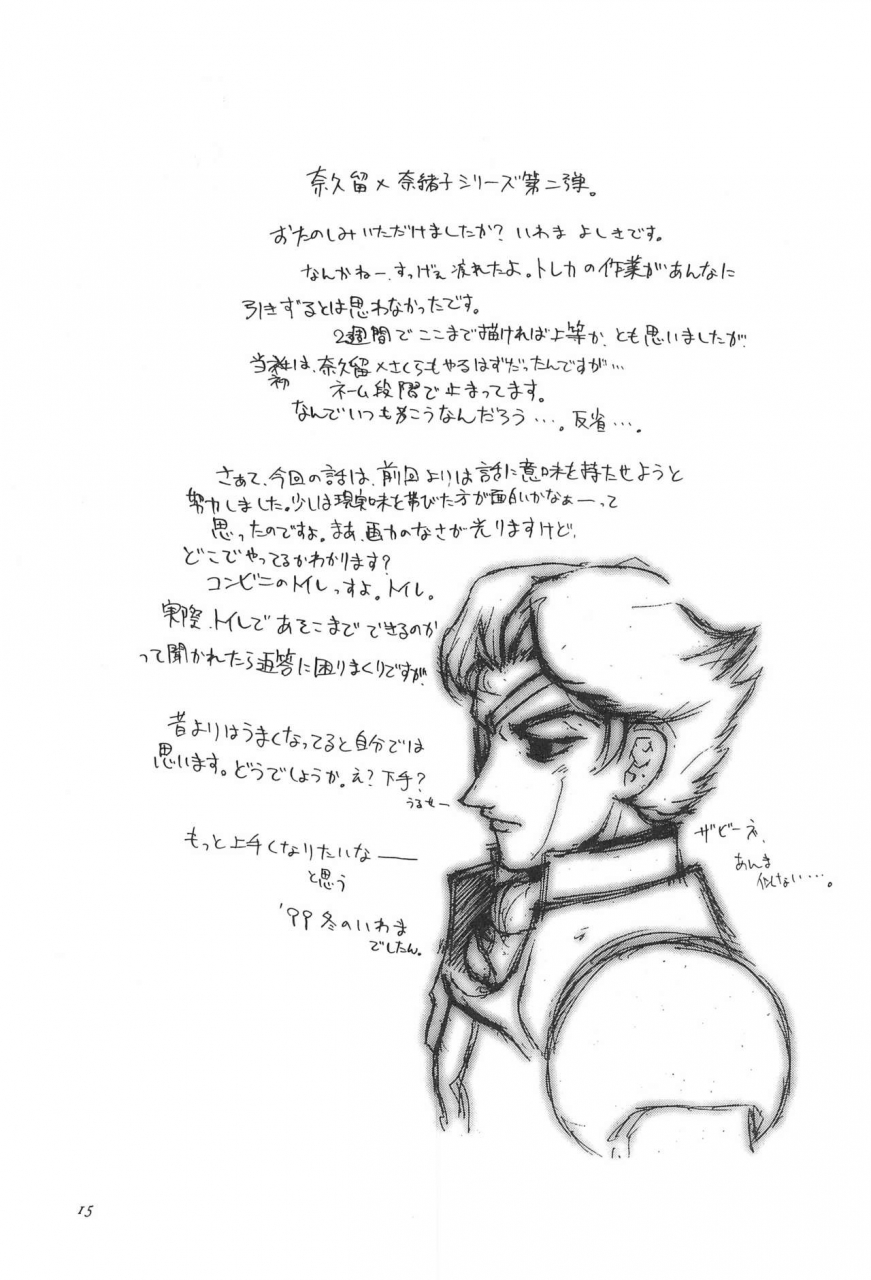 奈久留×奈緒子シリーズ第二弾。
おたのしみいただけましたか?いわま よしきです。
なんかねー、すっげぇ流れたよ。トレカの作業があんなに
引きずるとは思わなかったです。
2週間でここまで描ければ上等か、とも思いましたが、
当初は、奈久留×さくらもやるはずだったんですが…
ネーム段階で止まってます。
なんでいつもこうなんだろう…。反省…。
さぁて、今回の話は、前回よりは話に意味を持たせようと
努力しました。少しは現実味を帯びた方が面白いかなぁーって
思ったのですよ。まあ、画力のなさが光りますけど、
どこでやってるかわかります?
コンビニのトイレっすよ。トイレ。
実際、トイレであそこまでできるのか
って聞かれたら返答に困りまくりですが、
昔よりはうまくなってると自分では
思います。どうでしょうか。え?下手?
うるせー
もっと上手くなりたいなー
と思う
'99冬のいわま
でしたん。
ザビーネ、
あんま
似てない…。
15